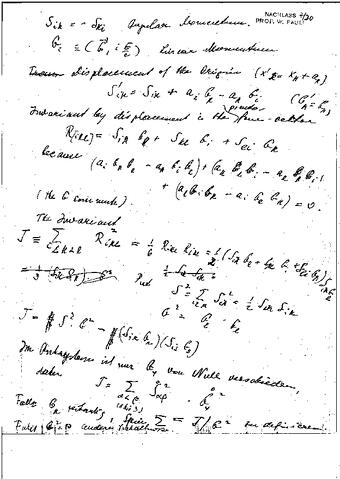 NACHLASS 7/30
PROF. W. PAULI
S_ik = - S_ki Angular Momentum.
G_i ≡ (G⃗, i E/c) Linear Momentum
displacement of the Origin (x'_k = x_k + a_k)
S'_ik = S_ik + a_i G_k - a_k G_i (G'_k = G_k)
Invariant by displacement is the pseudo
R_[ikl] = S_ik G_l + S_kl G_i + S_li G_k
because (a_i G_k G_l - a_k G_i G_l) + (a_k G_l G_i - a_l G_k G_i)
+ (a_l G_i G_k - a_i G_l G_k) = 0.
(the G commute.)
The Invariant
J ≡ Σ R²_ikl = 1/6 R_ikl R_ikl = 1/2 (S_ik G_l + S_kl G_i + S_li G_k) S_ik G_l
Put S² = Σ S²_ik = 1/2 S_ik S_ik
G² = G_l G_l
J = S² G² - (S_ik G_k)(S_il G_l)
Im Ruhsystem ist nur G_4 von Null verschieden,
daher J = Σ S²_αβ · G²_4
Falls G_k zeitartig, Spin Σ² = J/G² zu definieren.
Falls